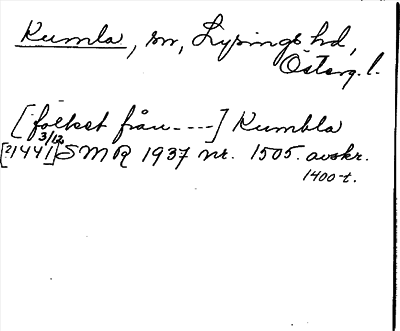 Kumla, sn, Lysings hd,
Österg. l.
[folket från - - - -] Kumbla
3/12
[?1441] SMR 1937 nr. 1505. avskr.
1400-t.